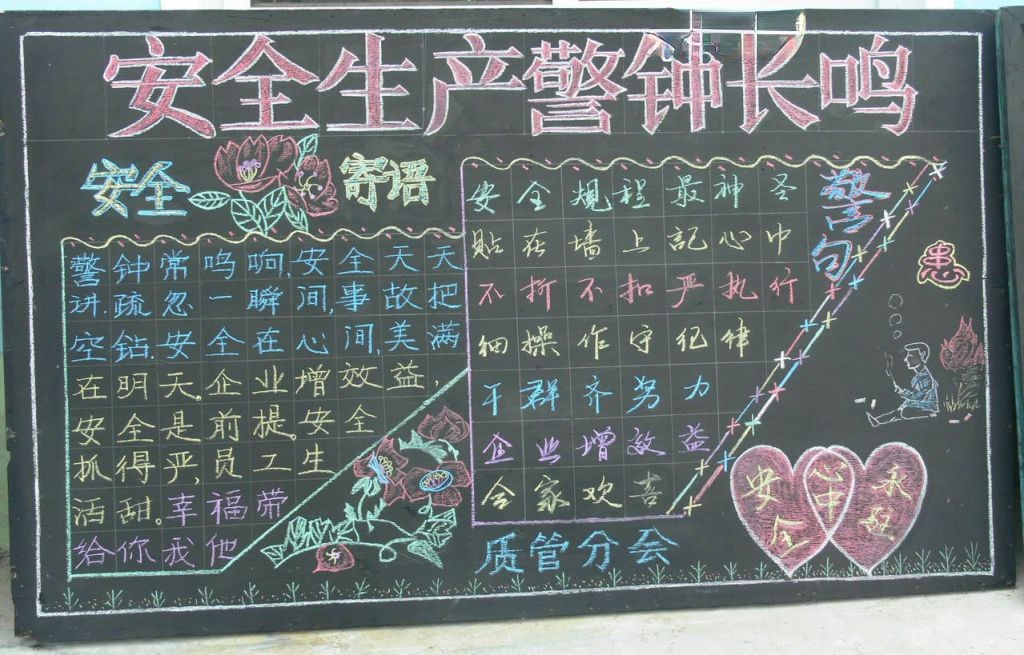 安全生产警钟长鸣
安全 寄语
警钟常鸣响,安全天天
讲.疏忽一瞬间,事故把
空钻.安全在心间,美满
在明天.企业增效益,
安全是前提.安全
抓得严,员工生
活甜。幸福带
给你我他
安全规程最神圣
贴在墙上記心中
不折不扣严执行
细操作守纪律
干群齐努力
企业增效益
合家欢喜
警句
患
安全 心中 永驻
质管分会